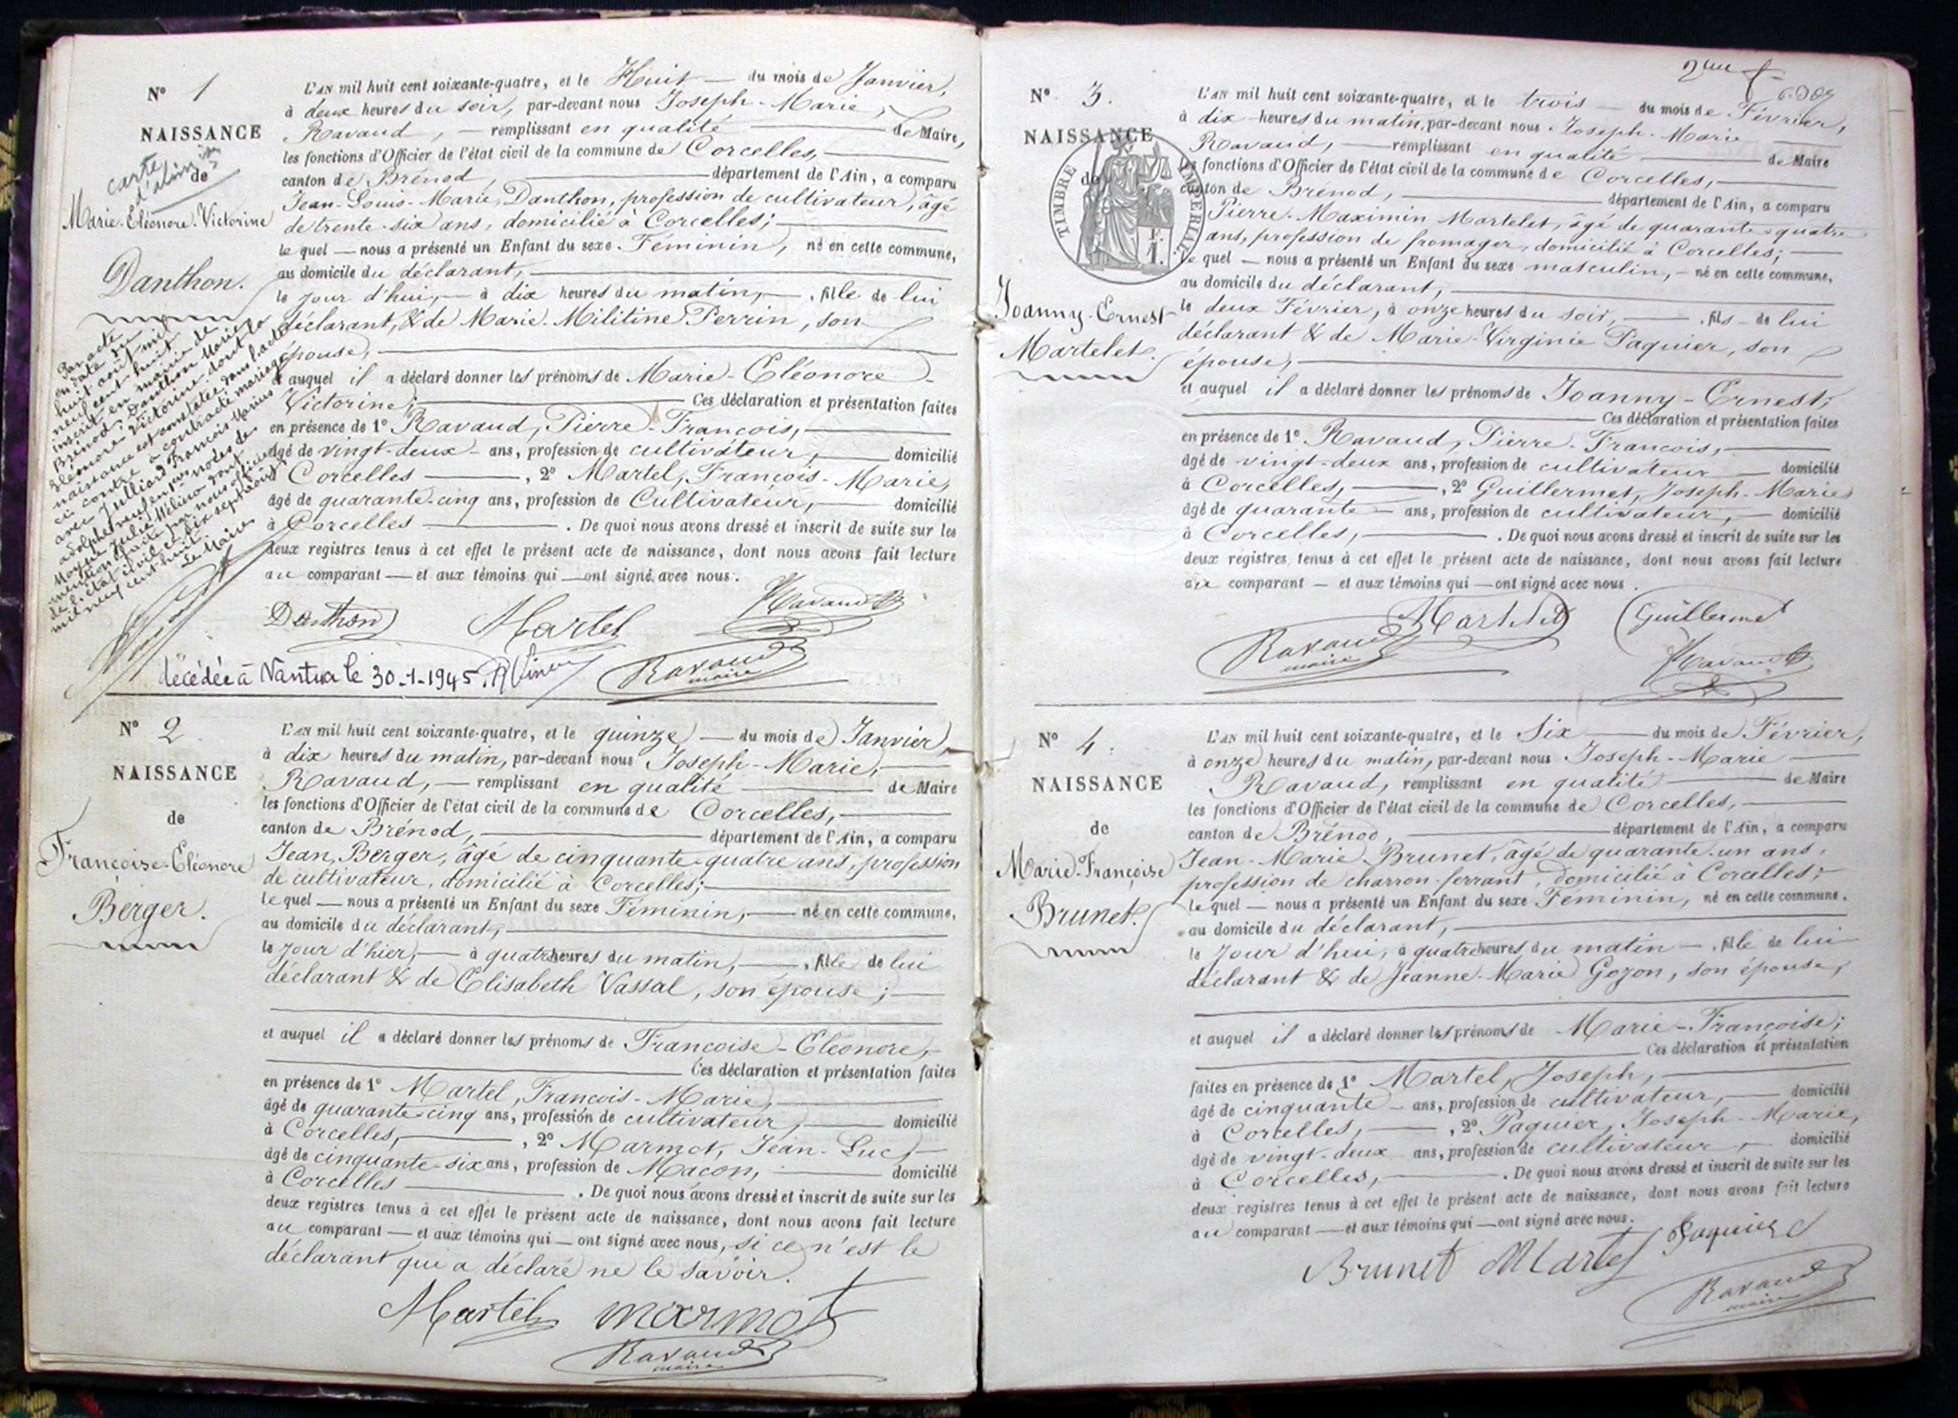 N° 1
NAISSANCE
de
carte
Marie-Eléonore-Victorine
Danthon.
L'AN mil huit cent soixante-quatre, et le Huit — du mois de Janvier,
à deux heures du soir, par-devant nous Joseph-Marie
Ravaud, — remplissant en qualité — de Maire,
les fonctions d'Officier de l'état civil de la commune de Corcelles,
canton de Brénod, — département de l'Ain, a comparu
Jean-Louis-Marie, Danthon, profession de cultivateur, âgé
de trente-six ans, domicilié à Corcelles;
le quel — nous a présenté un Enfant du sexe Féminin, né en cette commune,
au domicile du déclarant,
le jour d'hui, — à dix heures du matin, — , fille de lui
déclarant, & de Marie-Militine Perrin, son
épouse,
et auquel il a déclaré donner les prénoms de Marie-Eléonore-
Victorine; — Ces déclaration et présentation faites
en présence de 1° Ravaud, Pierre-François,
âgé de vingt-deux ans, profession de cultivateur, — domicilié
à Corcelles — , 2° Martel, François-Marie,
âgé de quarante-cinq ans, profession de Cultivateur, — domicilié
à Corcelles — . De quoi nous avons dressé et inscrit de suite sur les
deux registres tenus à cet effet le présent acte de naissance, dont nous avons fait lecture
au comparant — et aux témoins qui — ont signé avec nous.
Danthon Martel Ravaud
Ravaud
maire
Par acte
en date du
huit août mil
neuf cent huit
inscrit en mairie de
Brénod, Danthon Marie
Eléonor Victorine dont la
naissance est constatée dans l'acte
ci contre a contracté mariage
avec Julliard François Marius
Adolphe
mention faite par nous officier
de l'état civil
mil neuf cent huit.
Le Maire
décédée à Nantua le 30-1-1945.
N° 2
NAISSANCE
de
Françoise-Eléonore
Berger.
L'AN mil huit cent soixante-quatre, et le quinze — du mois de Janvier,
à dix heures du matin, par-devant nous Joseph-Marie,
Ravaud, — remplissant en qualité — de Maire
les fonctions d'Officier de l'état civil de la commune de Corcelles,
canton de Brénod, — département de l'Ain, a comparu
Jean, Berger, âgé de cinquante-quatre ans, profession
de cultivateur, domicilié à Corcelles;
le quel — nous a présenté un Enfant du sexe Féminin, — né en cette commune,
au domicile du déclarant,
le jour d'hier, — à quatre heures du matin, — , fille de lui
déclarant & de Elisabeth Vassal, son épouse;
et auquel il a déclaré donner les prénoms de Françoise-Eléonore,
Ces déclaration et présentation faites
en présence de 1° Martel, François-Marie,
âgé de quarante-cinq ans, profession de cultivateur, — domicilié
à Corcelles, — , 2° Marmot, Jean-Luc,
âgé de cinquante-six ans, profession de Macon, — domicilié
à Corcelles — . De quoi nous avons dressé et inscrit de suite sur les
deux registres tenus à cet effet le présent acte de naissance, dont nous avons fait lecture
au comparant — et aux témoins qui — ont signé avec nous, si ce n'est le
déclarant qui a déclaré ne le savoir.
Martel marmot
Ravaud
maire
N° 3.
NAISSANCE
de
TIMBRE IMPERIAL
Joanny-Ernest
Martelet.
L'AN mil huit cent soixante-quatre, et le trois — du mois de Février,
à dix heures du matin, par-devant nous Joseph-Marie
Ravaud, — remplissant en qualité — de Maire
les fonctions d'Officier de l'état civil de la commune de Corcelles,
canton de Brénod, — département de l'Ain, a comparu
Pierre-Maximin Martelet, âgé de quarante-quatre
ans, profession de fromager, domicilié à Corcelles;
le quel — nous a présenté un Enfant du sexe masculin, — né en cette commune,
au domicile du déclarant,
le deux Février, à onze heures du soir, — , fils — de lui
déclarant & de Marie-Virginie Paquier, son
épouse,
et auquel il a déclaré donner les prénoms de Joanny-Ernest;
Ces déclaration et présentation faites
en présence de 1° Ravaud, Pierre-François,
âgé de vingt-deux ans, profession de cultivateur — domicilié
à Corcelles, — , 2° Guillermet, Joseph-Marie
âgé de quarante — ans, profession de cultivateur, — domicilié
à Corcelles, — . De quoi nous avons dressé et inscrit de suite sur les
deux registres tenus à cet effet le présent acte de naissance, dont nous avons fait lecture
au comparant — et aux témoins qui — ont signé avec nous.
Martelet Guillermet
Ravaud
maire
Ravaud
N° 4.
NAISSANCE
de
Marie-Françoise
Brunet.
L'AN mil huit cent soixante-quatre, et le Six — du mois de Février,
à onze heures du matin, par-devant nous Joseph-Marie
Ravaud, remplissant en qualité — de Maire
les fonctions d'Officier de l'état civil de la commune de Corcelles,
canton de Brénod, — département de l'Ain, a comparu
Jean-Marie Brunet, âgé de quarante-un ans,
profession de charron-ferrant, domicilié à Corcelles;
le quel — nous a présenté un Enfant du sexe Féminin, né en cette commune,
au domicile du déclarant,
le Jour d'hui, à quatre heures du matin — , fille de lui
déclarant & de Jeanne-Marie Gozon, son épouse,
et auquel il a déclaré donner les prénoms de Marie-Françoise;
Ces déclaration et présentation
faites en présence de 1° Martel, Joseph,
âgé de cinquante — ans, profession de cultivateur, — domicilié
à Corcelles, — , 2° Paquier, Joseph-Marie,
âgé de vingt-deux ans, profession de cultivateur, — domicilié
à Corcelles, — . De quoi nous avons dressé et inscrit de suite sur les
deux registres tenus à cet effet le présent acte de naissance, dont nous avons fait lecture
au comparant — et aux témoins qui — ont signé avec nous.
Brunet Martel Paquier
Ravaud
maire